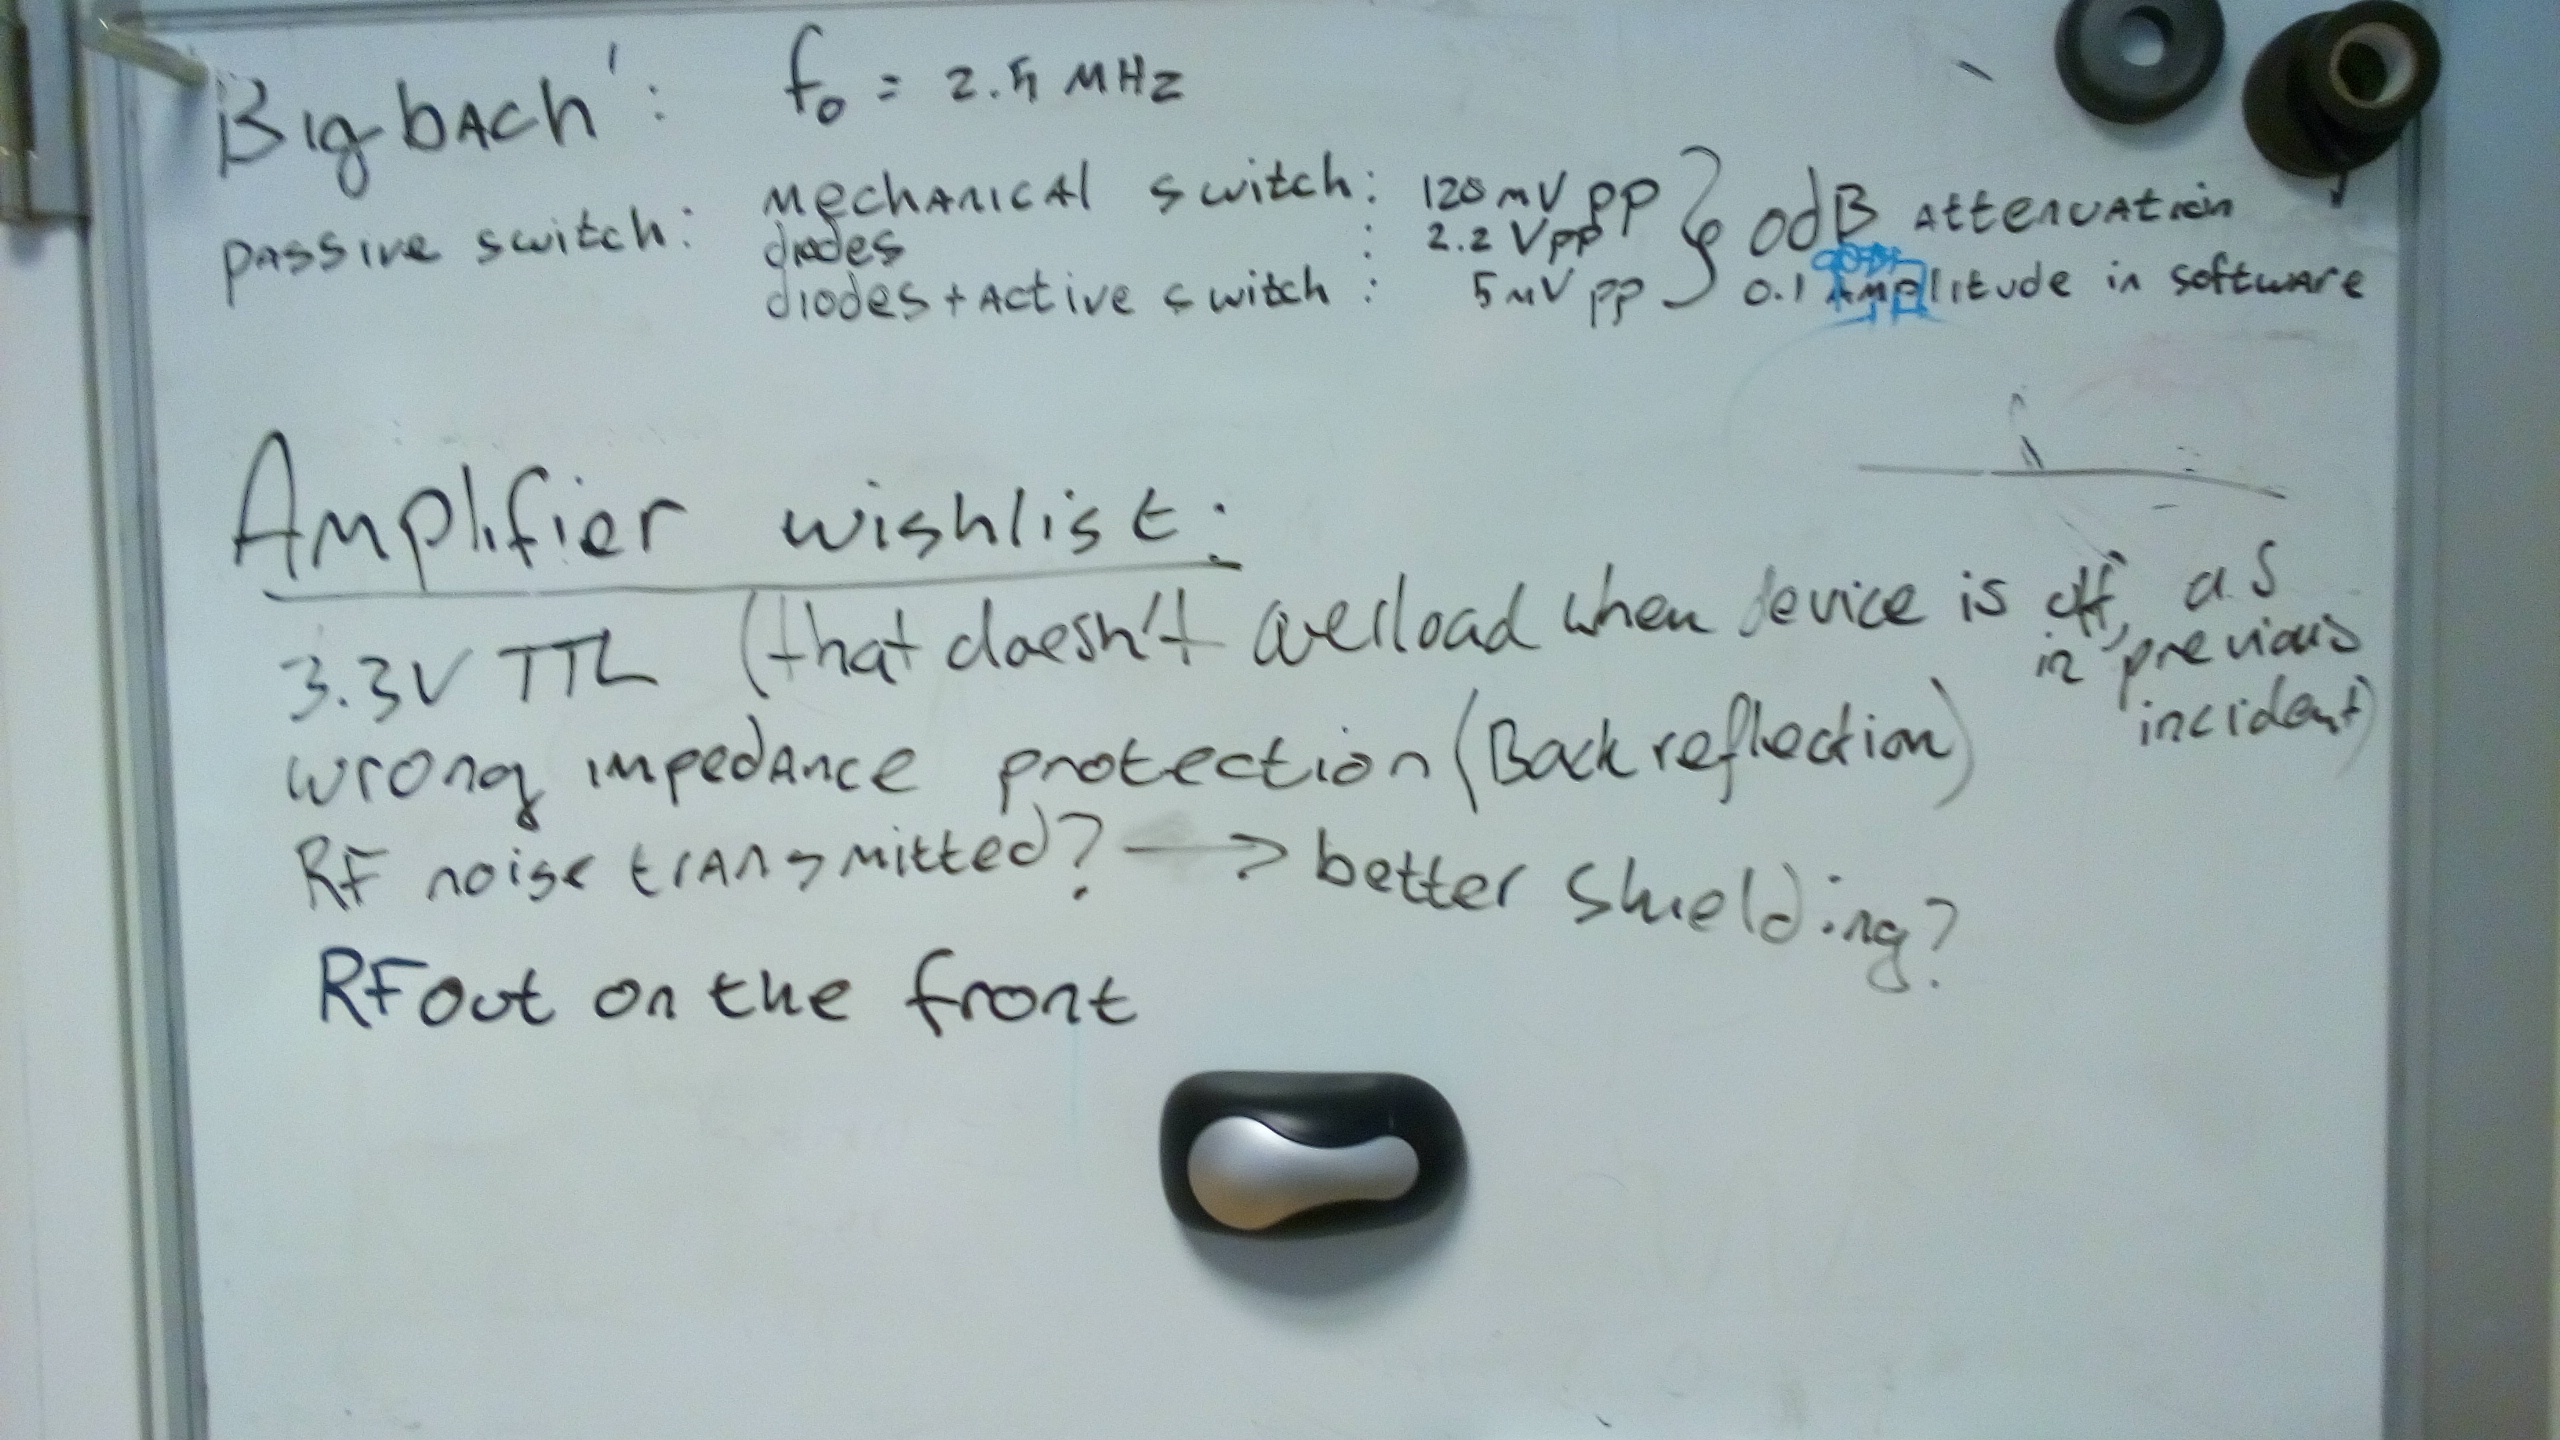 Big bach': f₀ = 2.5 MHz
passive switch: mechanical switch: 120 mV pp } 0dB attenuation
diodes : 2.2 Vpp
diodes + active switch : 5 mV pp 0.1 Amplitude in software
Amplifier wishlist:
3.3V TTL (that doesn't overload when device is off, as
in previous
incident)
wrong impedance protection (Back reflection)
RF noise transmitted? → better shielding?
RF out on the front